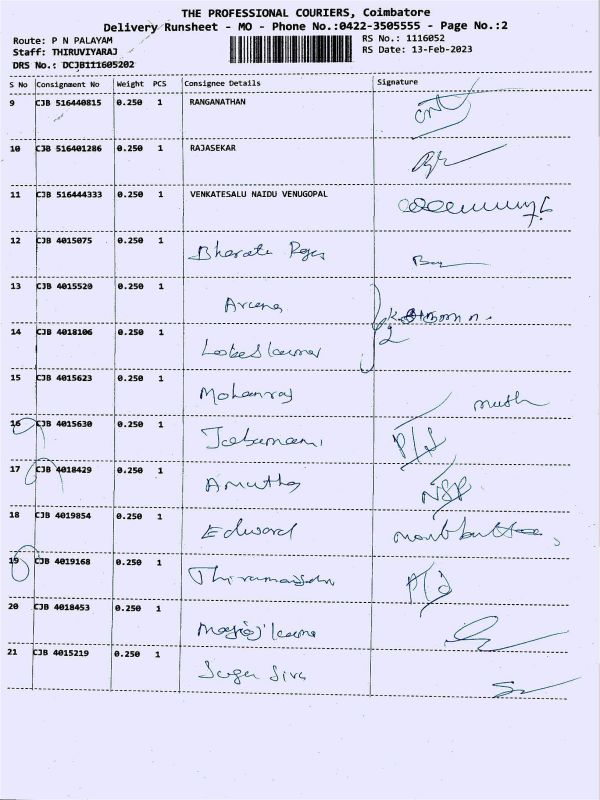 THE PROFESSIONAL COURIERS, Coimbatore
Delivery Runsheet - MO - Phone No.:0422-3505555 - Page No.:2
Route: P N PALAYAM RS No.: 1116052
Staff: THIRUVIYARAJ RS Date: 13-Feb-2023
DRS No.: DCJB111605202
S No Consignment No Weight PCS Consignee Details Signature
9 CJB 516440815 0.250 1 RANGANATHAN
10 CJB 516401286 0.250 1 RAJASEKAR
11 CJB 516444333 0.250 1 VENKATESALU NAIDU VENUGOPAL
12 CJB 4015075 0.250 1 Bharath
13 CJB 4015520 0.250 1
14 CJB 4018106 0.250 1
15 CJB 4015623 0.250 1 Mohanraj
16 CJB 4015630 0.250 1 P/S
17 CJB 4018429 0.250 1 Amutha NSP
18 CJB 4019854 0.250 1 Edward
19 CJB 4019168 0.250 1
20 CJB 4018453 0.250 1
21 CJB 4015219 0.250 1 Siva